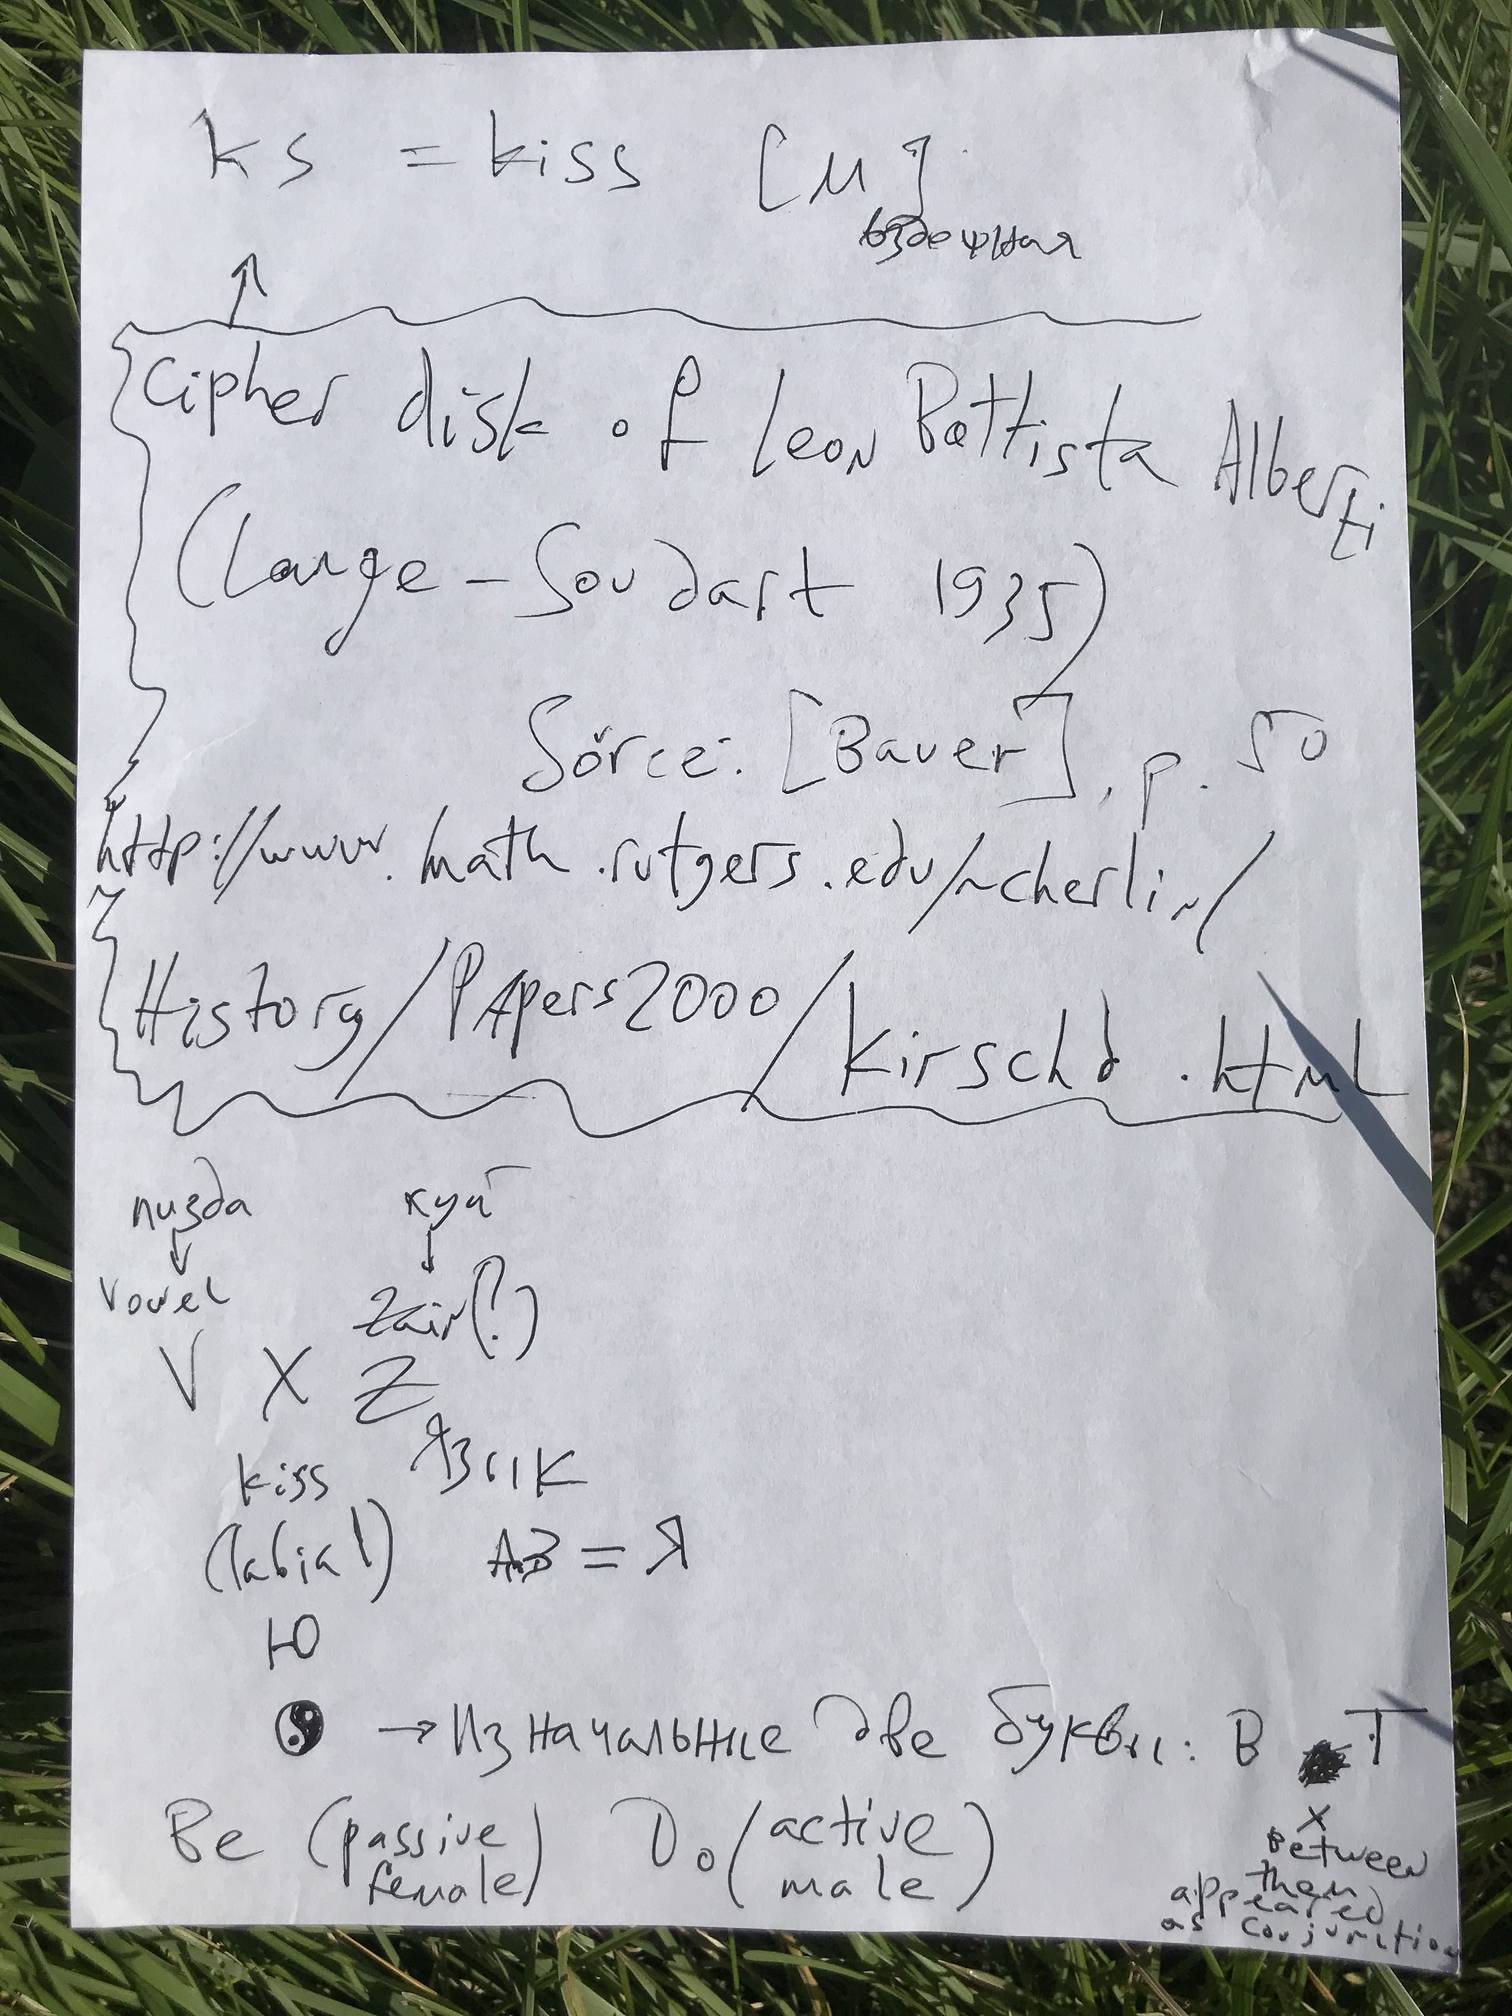 ks = kiss [м]
Cipher disk of Leon Battista Alberti
(Lange-Soudart 1935)
Sŏrce: [Bauer], p. 50
http://www.math.rutgers.edu/~cherlin/
History/PApers2000/kirschd.html
пизда хуй
vowel Zain(?)
V X Z
kiss язык
(labial) AB = Я
Ю
☯ → Изначальные две буквы: В Т
Be (passive female) Do (active male)
X
Between
them
appeared
as conjunction